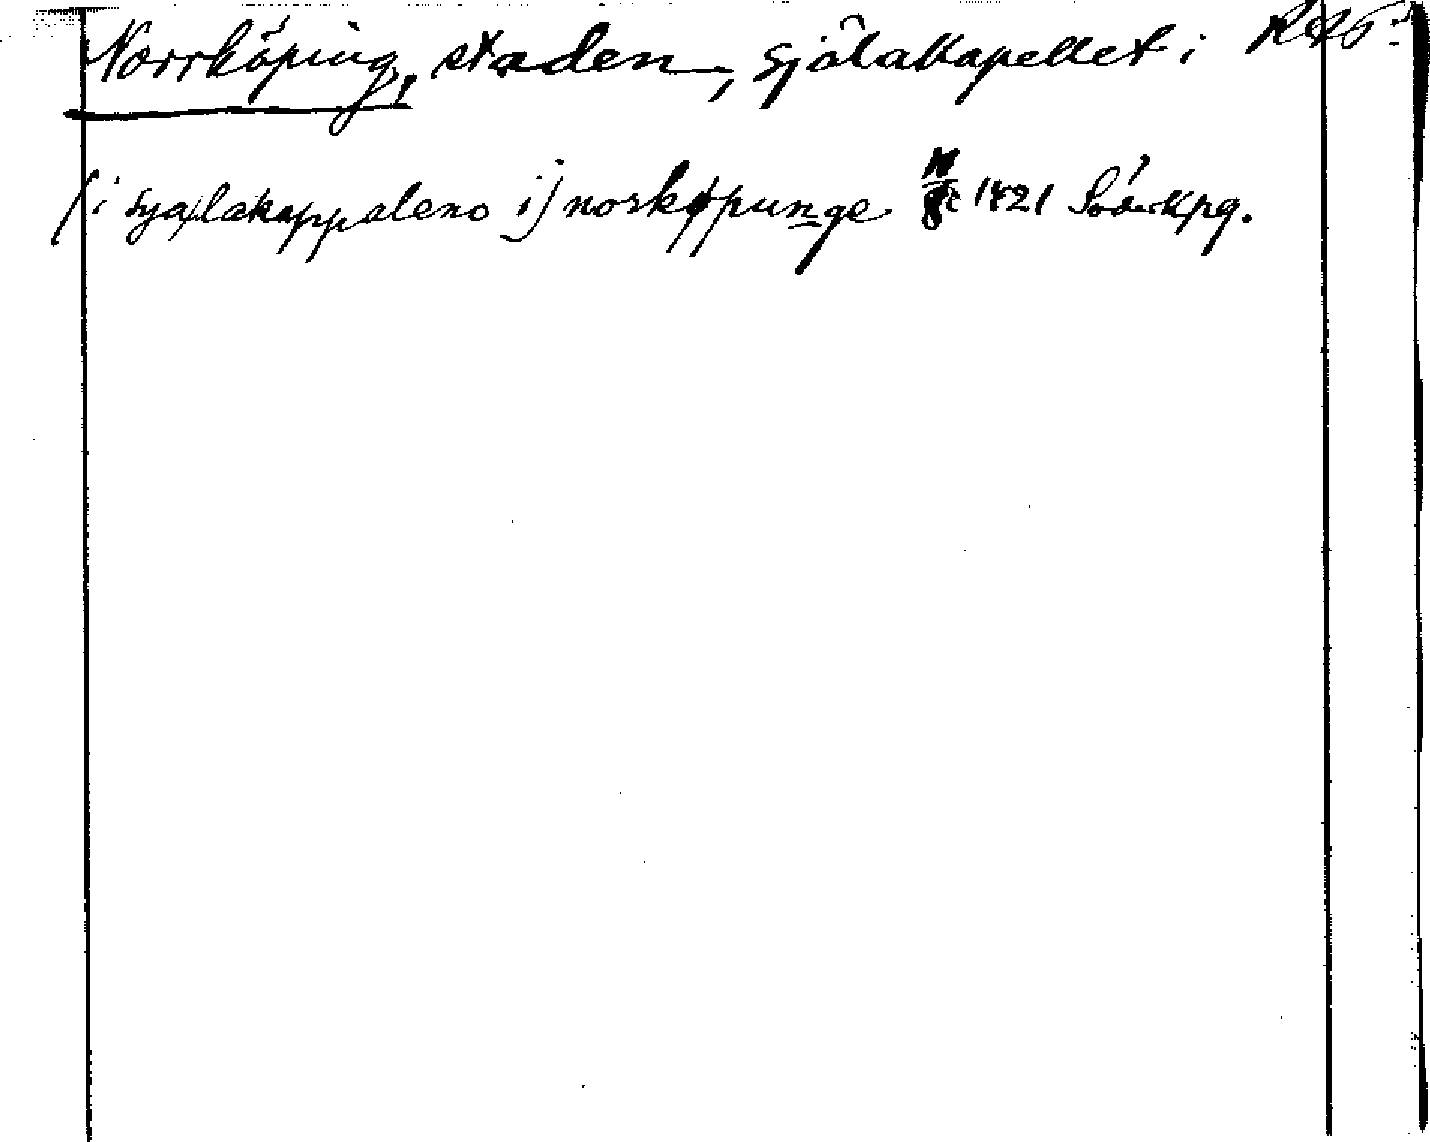 Norrköping, staden, själakapellet i RAP
(i syælakappaleno i) norskøpunge 1421 Söderkpg.